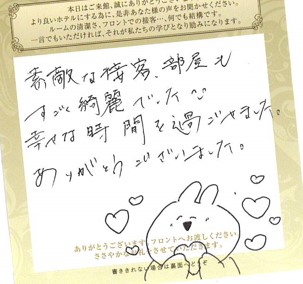 本日はご来館、誠にありがとうございます。
より良いホテルにする為に、是非あなた様の声をお聞かせください。
ルームの清潔さ、フロントでの接客…、何でも結構です。
一言でもいただければ、それが私たちの学びとなり励みになります。
素敵な接客、部屋も
すごく綺麗でした
幸せな時間を過ごせました。
ありがとうございました。
ありがとうございます。フロントへお渡しください。
ささやかな
させていただきます。
書ききれない場合は裏面へどうぞ